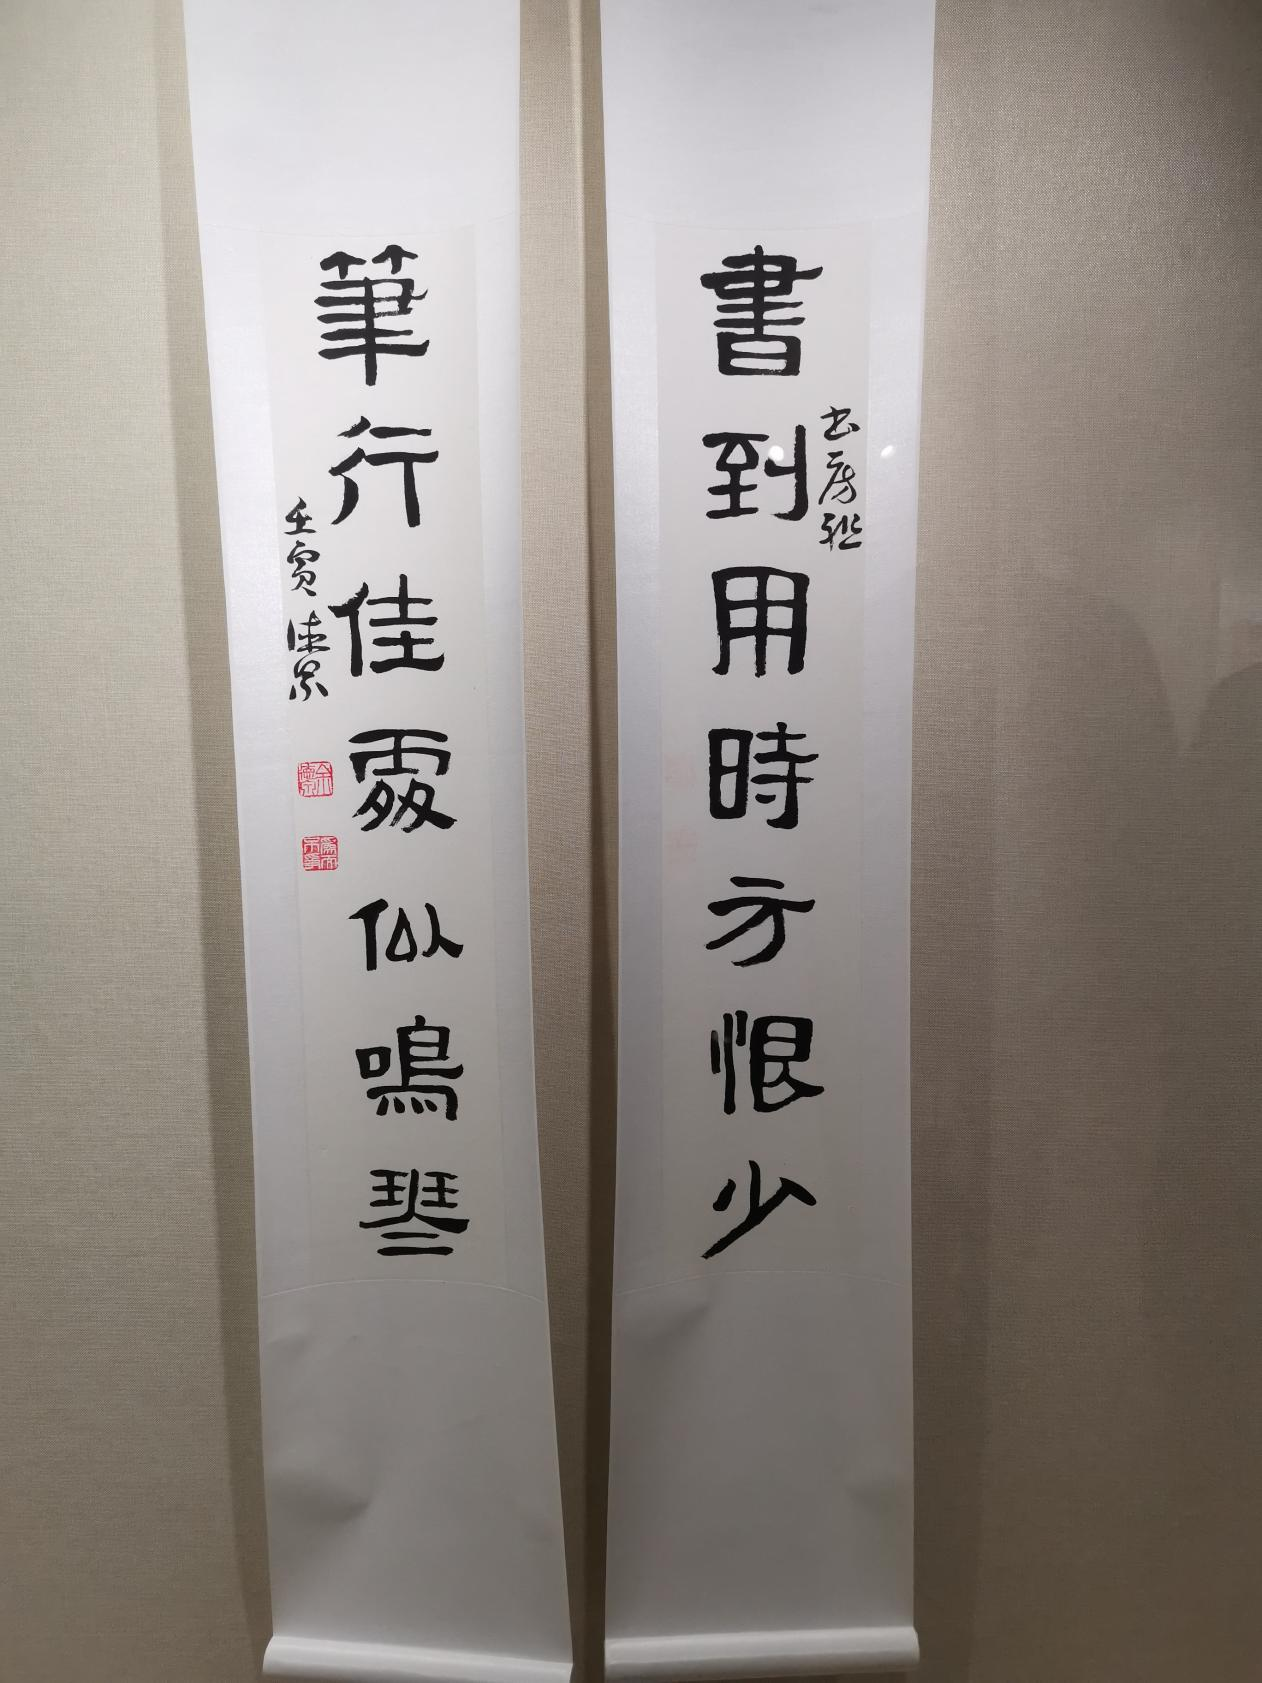 書到用時方恨少
書房雅
筆行佳處似鳴琴
壬寅 德泉